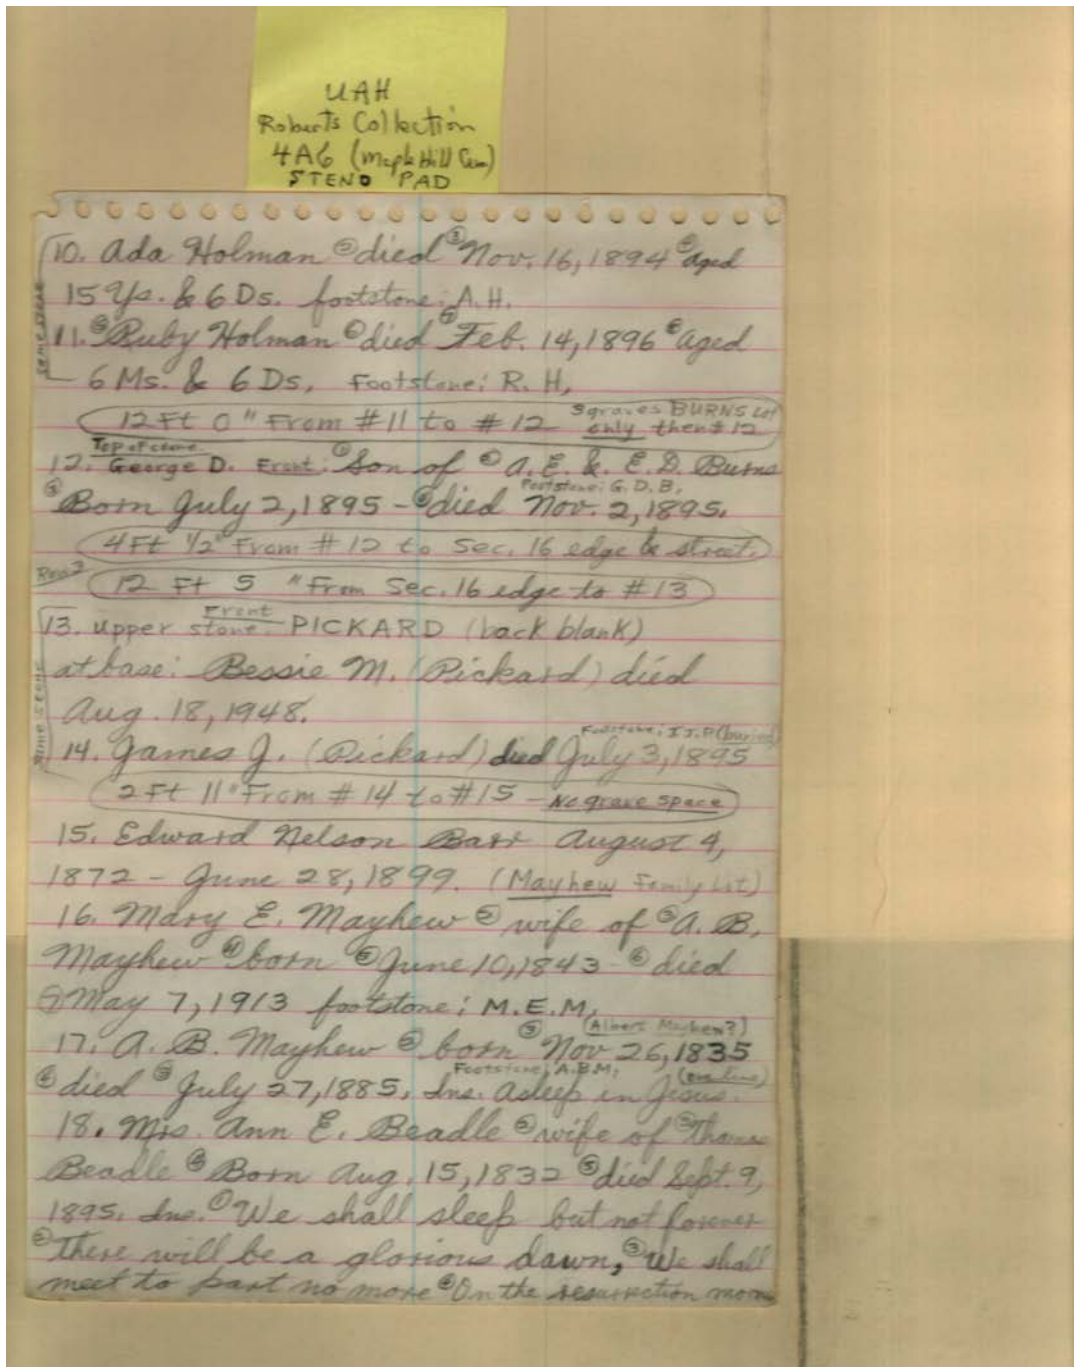 UAH
Roberts Collection
4A6 (Maple Hill Cem)
STENO PAD
10. Ada Holman ② died ③ Nov. 16, 1894 ④ aged
15 Ys. & 6 Ds. footstone: A.H.
same stone
11. ⑤ Ruby Holman ⑥ died ⑦ Feb. 14, 1896 ⑧ aged
6 Ms. & 6 Ds. Footstone: R. H.
12 Ft 0" From #11 to #12 3 graves BURNS Lot
only then #12
Top of stone
12. George D. Front: ① Son of ② A. E. & E. D. Burns
Footstone: G. D. B.
③ Born July 2, 1895 - ④ died Nov. 2, 1895.
4 Ft ½" From #12 to Sec. 16 edge & street.
Row 2
12 Ft 5" From Sec. 16 edge to #13
Front
13. upper stone: PICKARD (back blank)
at base: Bessie M. (Pickard) died
Aug. 18, 1948.
same stone
Footstone: J.J.P (buried)
14. James J. (Pickard) died July 3, 1895
2 Ft 11" From #14 to #15 - No grave space
15. Edward Nelson Barr August 4,
1872 - June 28, 1899. (Mayhew Family Lot)
16. Mary E. Mayhew ② wife of ③ A. B.
Mayhew ④ born ⑤ June 10, 1843 - ⑥ died
⑦ May 7, 1913 footstone: M.E.M.
(Albert Mayhew?)
17. A. B. Mayhew ② born ③ Nov 26, 1835
Footstone: A.B.M. (one line)
④ died ⑤ July 27, 1885. Ins. Asleep in Jesus.
18. Mrs. Ann E. Beadle ② wife of ③ Thomas
Beadle ④ Born Aug. 15, 1832 ⑤ died Sept. 9,
1895. Ins. ① We shall sleep but not forever
② There will be a glorious dawn, ③ We shall
meet to part no more ④ On the resurrection morn